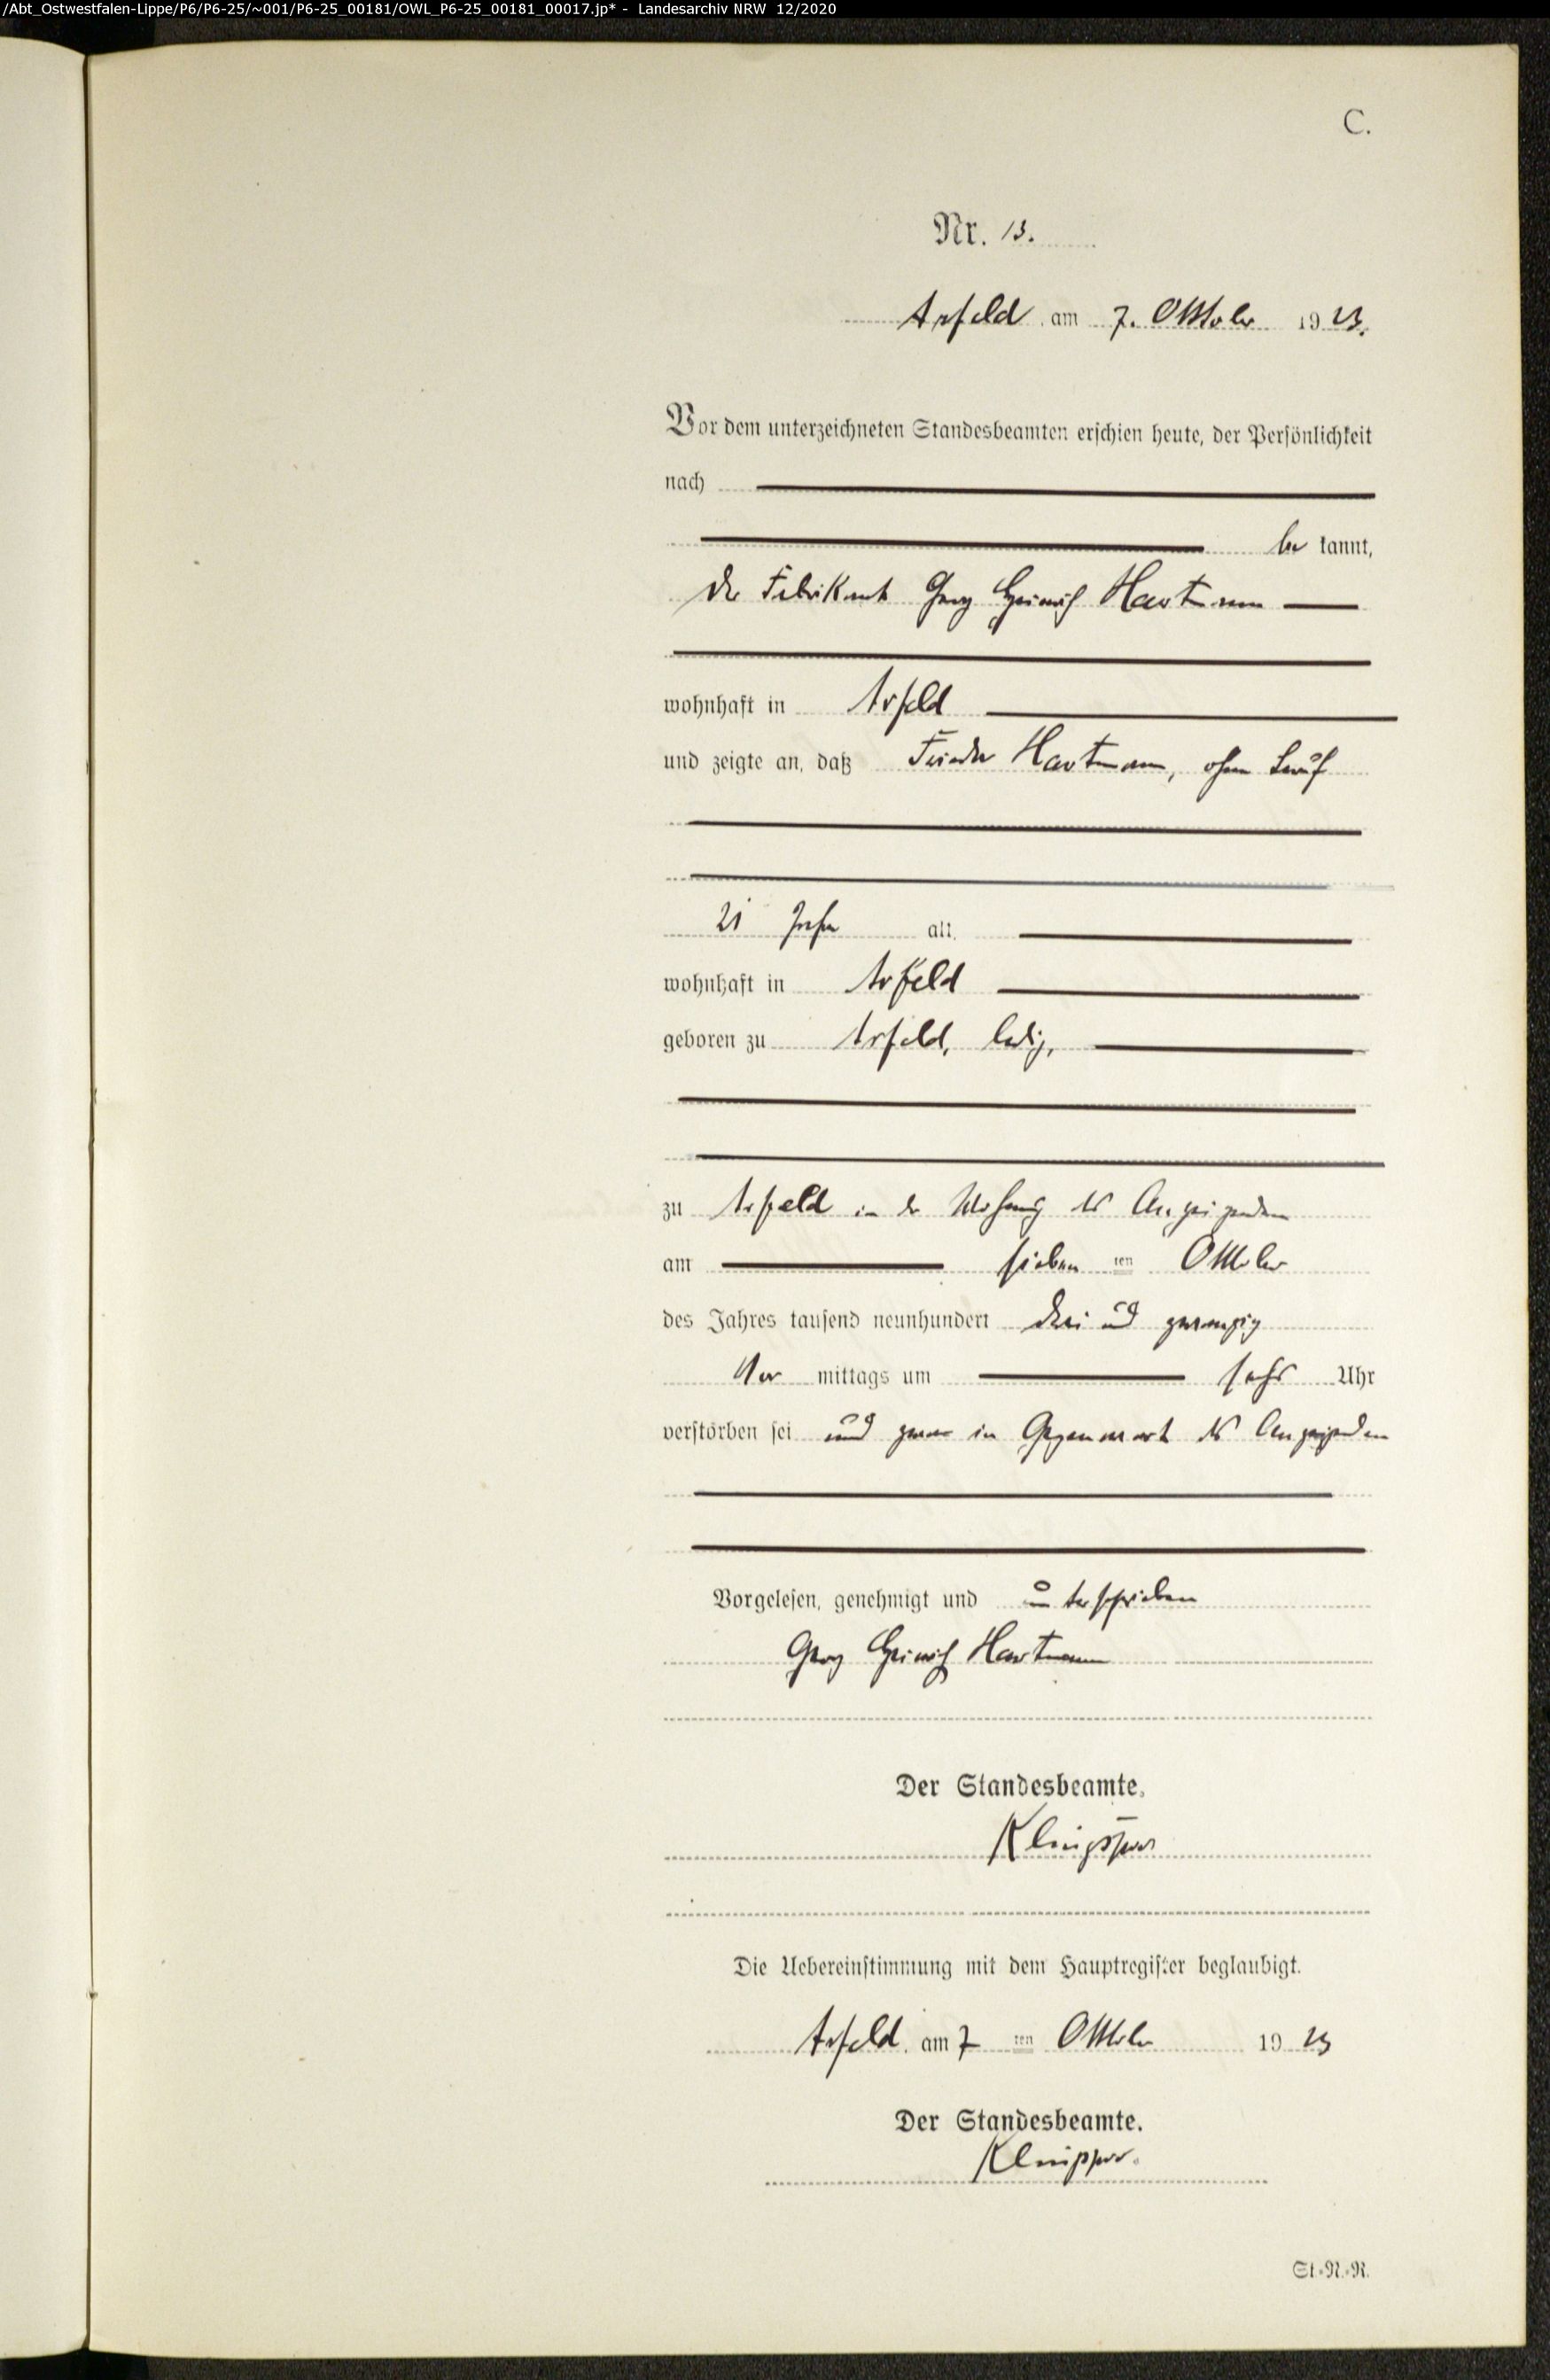 /Abt_Ostwestfalen-Lippe/P6/P6-25/~001/P6-25_00181/OWL_P6-25_00181_00017.jp* - Landesarchiv NRW 12/2020
C.
Nr. 13.
Arfeld, am 7. Oktober 1923.
Vor dem unterzeichneten Standesbeamten erschien heute, der Persönlichkeit
nach
be kannt,
der Fabrikant Georg Heinrich Hartmann
wohnhaft in Arfeld
und zeigte an, daß Frieda Hartmann, ohne Beruf
21 Jahre alt,
wohnhaft in Arfeld
geboren zu Arfeld, ledig,
zu Arfeld in der Wohnung des Anzeigenden
am sieben ten Oktober
des Jahres tausend neunhundert drei und zwanzig
Vor mittags um sechs Uhr
verstorben sei und zwar in Gegenwart des Anzeigenden
Vorgelesen, genehmigt und unterschrieben
Georg Heinrich Hartmann
Der Standesbeamte.
Klingspor
Die Uebereinstimmung mit dem Hauptregister beglaubigt.
Arfeld, am 7 ten Oktober 1923
Der Standesbeamte.
Klingspor.
St.-N.-R.